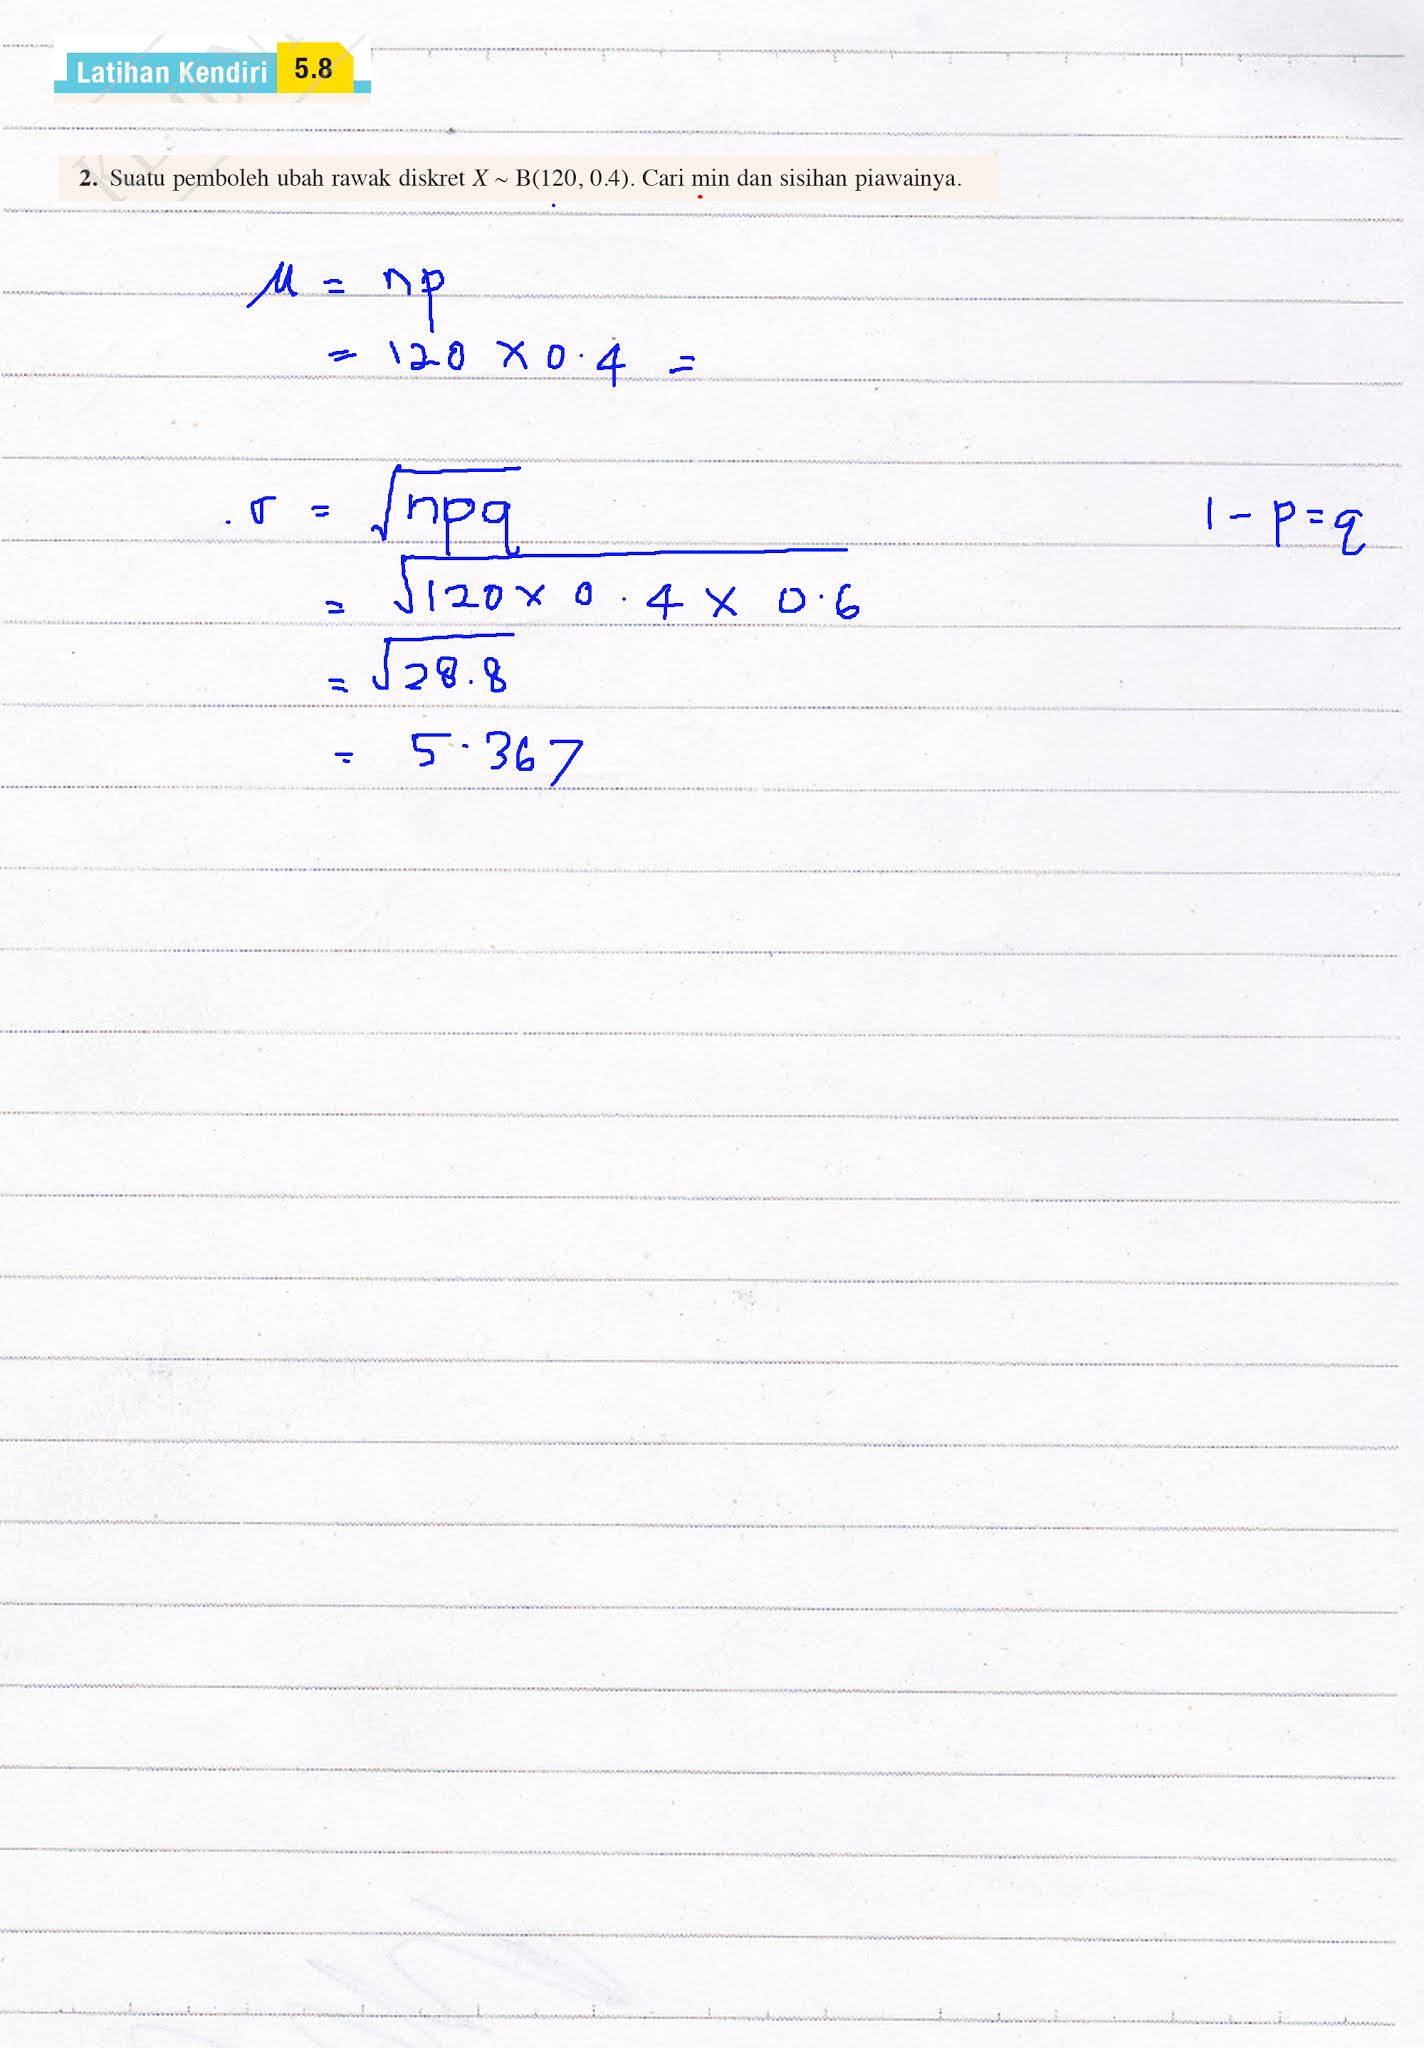 Latihan Kendiri 5.8
2. Suatu pemboleh ubah rawak diskret X ~ B(120, 0.4). Cari min dan sisihan piawainya.
μ = np
= 120 × 0.4 =
σ = √npq
1 - p = q
= √120 × 0.4 × 0.6
= √28.8
= 5.367